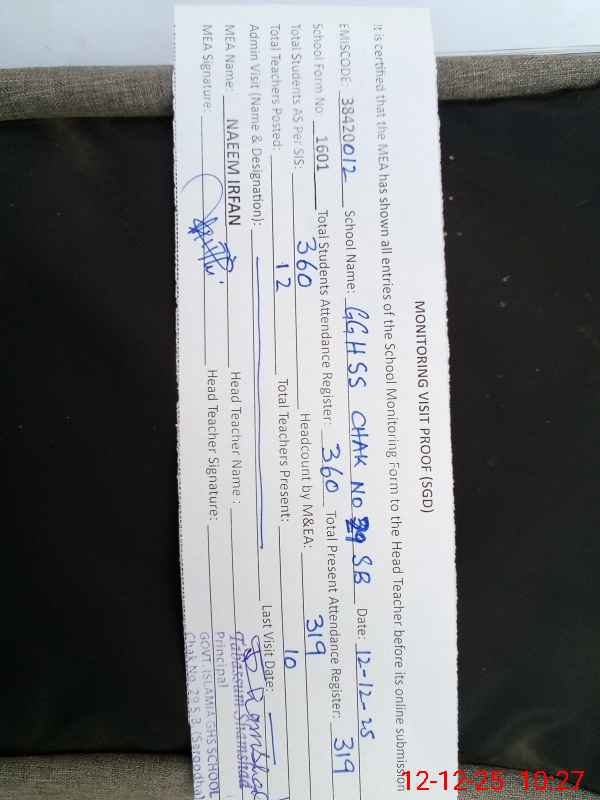 MONITORING VISIT PROOF (SGD)
It is certified that the MEA has shown all entries of the School Monitoring Form to the Head Teacher before its online submission
EMISCODE: 38420012 School Name: GGHSS CHAK NO 29 SB Date: 12-12-25
School Form No: 1601 Total Students Attendance Register: 360 Total Present Attendance Register: 319
Total Students AS Per SIS: 360 Headcount by M&EA: 319
Total Teachers Posted: 12 Total Teachers Present: 10
Admin Visit (Name & Designation): Last Visit Date:
MEA Name: NAEEM IRFAN Head Teacher Name:
MEA Signature: Head Teacher Signature:
Tabassum Shamshad
Principal
GOVT. ISLAMIA GHS SCHOOL
Chak No. 29 S.B (Sargodha)
12-12-25 10:27